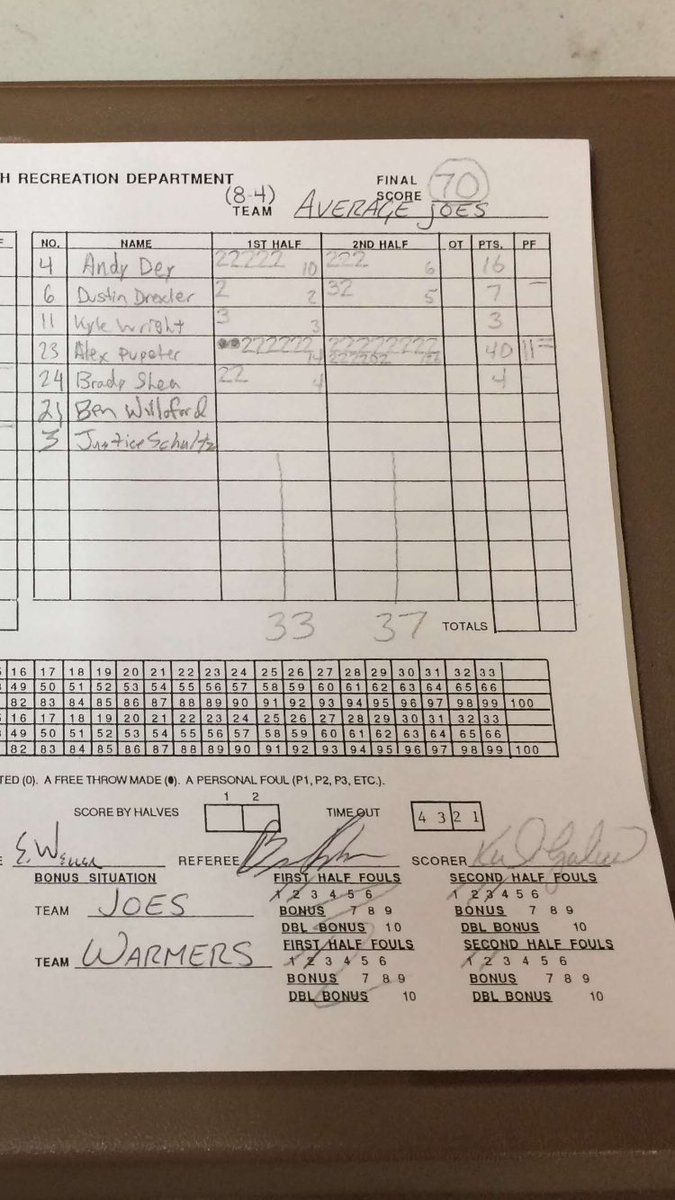 H RECREATION DEPARTMENT
FINAL SCORE 70
(8-4)
TEAM AVERAGE JOES
NO. NAME 1ST HALF 2ND HALF OT PTS. PF
4 Andy Dey 22222 10 222 6 16
6 Dustin Drexler 2 2 32 5 7
11 Kyle Wright 3 3 3
23 Alex 222222 14 40
24 Brady Shea 22 4 4
21 Ben Williford
3 Justice Schultz
33 37 TOTALS
16 17 18 19 20 21 22 23 24 25 26 27 28 29 30 31 32 33
49 50 51 52 53 54 55 56 57 58 59 60 61 62 63 64 65 66
82 83 84 85 86 87 88 89 90 91 92 93 94 95 96 97 98 99 100
16 17 18 19 20 21 22 23 24 25 26 27 28 29 30 31 32 33
49 50 51 52 53 54 55 56 57 58 59 60 61 62 63 64 65 66
82 83 84 85 86 87 88 89 90 91 92 93 94 95 96 97 98 99 100
TED (0). A FREE THROW MADE (●). A PERSONAL FOUL (P1, P2, P3, ETC.).
1 2
SCORE BY HALVES TIME OUT 4 3 2 1
REFEREE SCORER
BONUS SITUATION FIRST HALF FOULS SECOND HALF FOULS
1 2 3 4 5 6 1 2 3 4 5 6
TEAM JOES BONUS 7 8 9 BONUS 7 8 9
DBL BONUS 10 DBL BONUS 10
FIRST HALF FOULS SECOND HALF FOULS
TEAM WARMERS 1 2 3 4 5 6 1 2 3 4 5 6
BONUS 7 8 9 BONUS 7 8 9
DBL BONUS 10 DBL BONUS 10